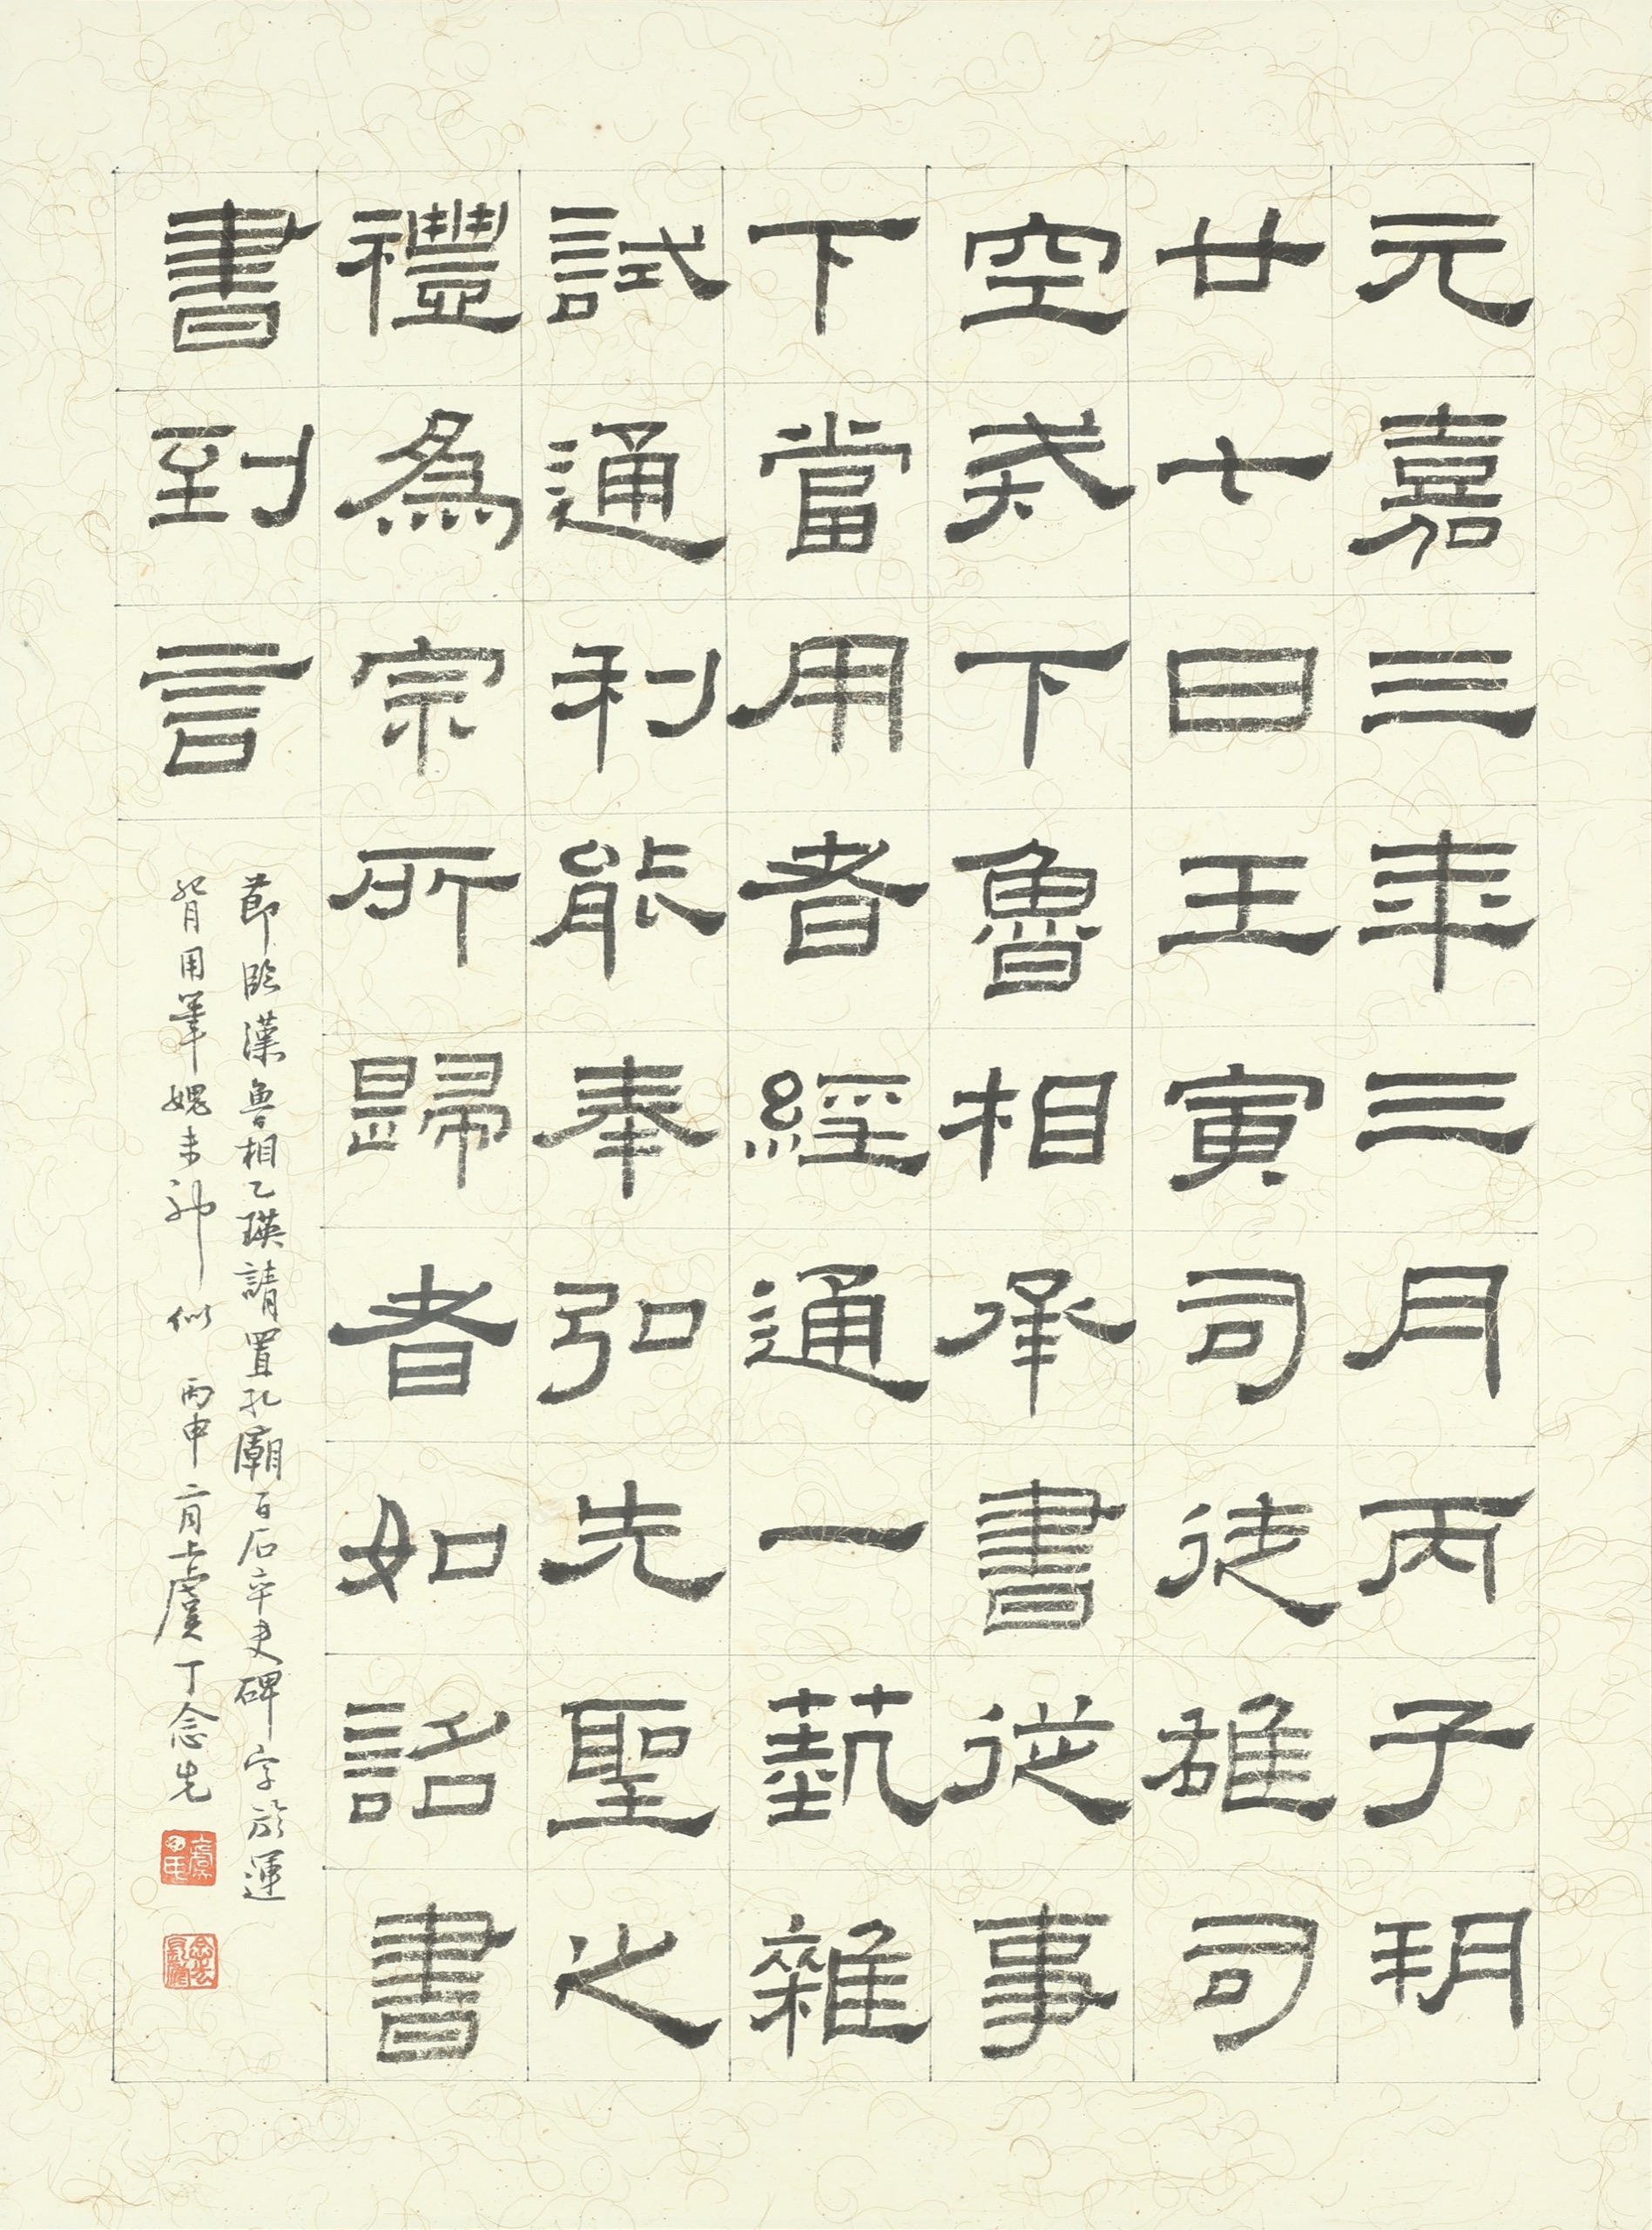 元嘉三年三月丙子玥
廿七日王寅司徒雄司
空戒下魯相承書從事
下當用者經通一藝雜
試通利能奉弘先聖之
禮為宗所歸者如詔書
書到言
節臨漢魯相乙瑛請置孔廟百石卒史碑字於運
腎用筆媿未神似 丙申二月上虞丁念先